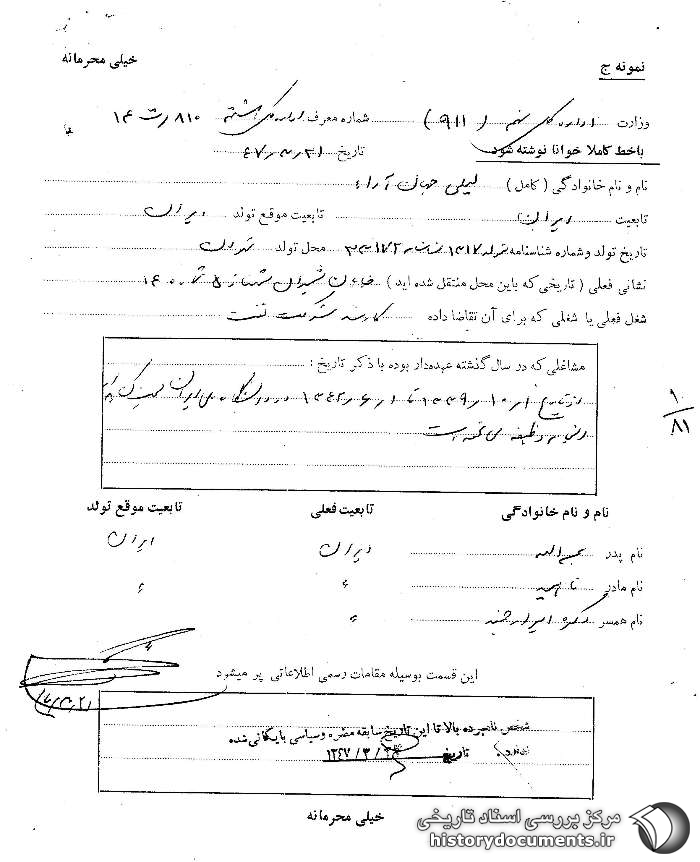 خیلی محرمانه
نمونه ج
وزارت اداره کل نهم ( ۹۱۱ ) شماره معرف اداره کل هشتم ۸۱۰
باخط کاملا خوانا نوشته شود
تاریخ ۴۷٫۳٫۲۱
نام و نام خانوادگی ( کامل ) لیلی جهان آراء
تابعیت ایران تابعیت موقع تولد ایران
تاریخ تولد و شماره شناسنامه متولد ۱۳۱۷ محل تولد تهران
نشانی فعلی ( تاریخی که باین محل منتقل شده اید ) خیابان
شغل فعلی یا شغلی که برای آن تقاضا داده کارمند شرکت نفت
مشاغلی که در سال گذشته عهده‌دار بوده با ذکر تاریخ :
از تاریخ ۱٫۱۰٫۱۳۳۹ تا ۱٫۶٫۱۳۴۲
انجام وظیفه می نموده است
۱۰/۸۱
نام و نام خانوادگی تابعیت فعلی تابعیت موقع تولد
نام پدر ایران ایران
نام مادر ناهید " "
نام همسر دکتر ایرج "
این قسمت بوسیله مقامات رسمی اطلاعاتی پر میشود
شخص نامبرده بالا تا این تاریخ سابقه مضره و سیاسی بایگانی شده
ندارد. تاریخ ۱۳۴۷/۳/
خیلی محرمانه
مرکز بررسی اسناد تاریخی
historydocuments.ir